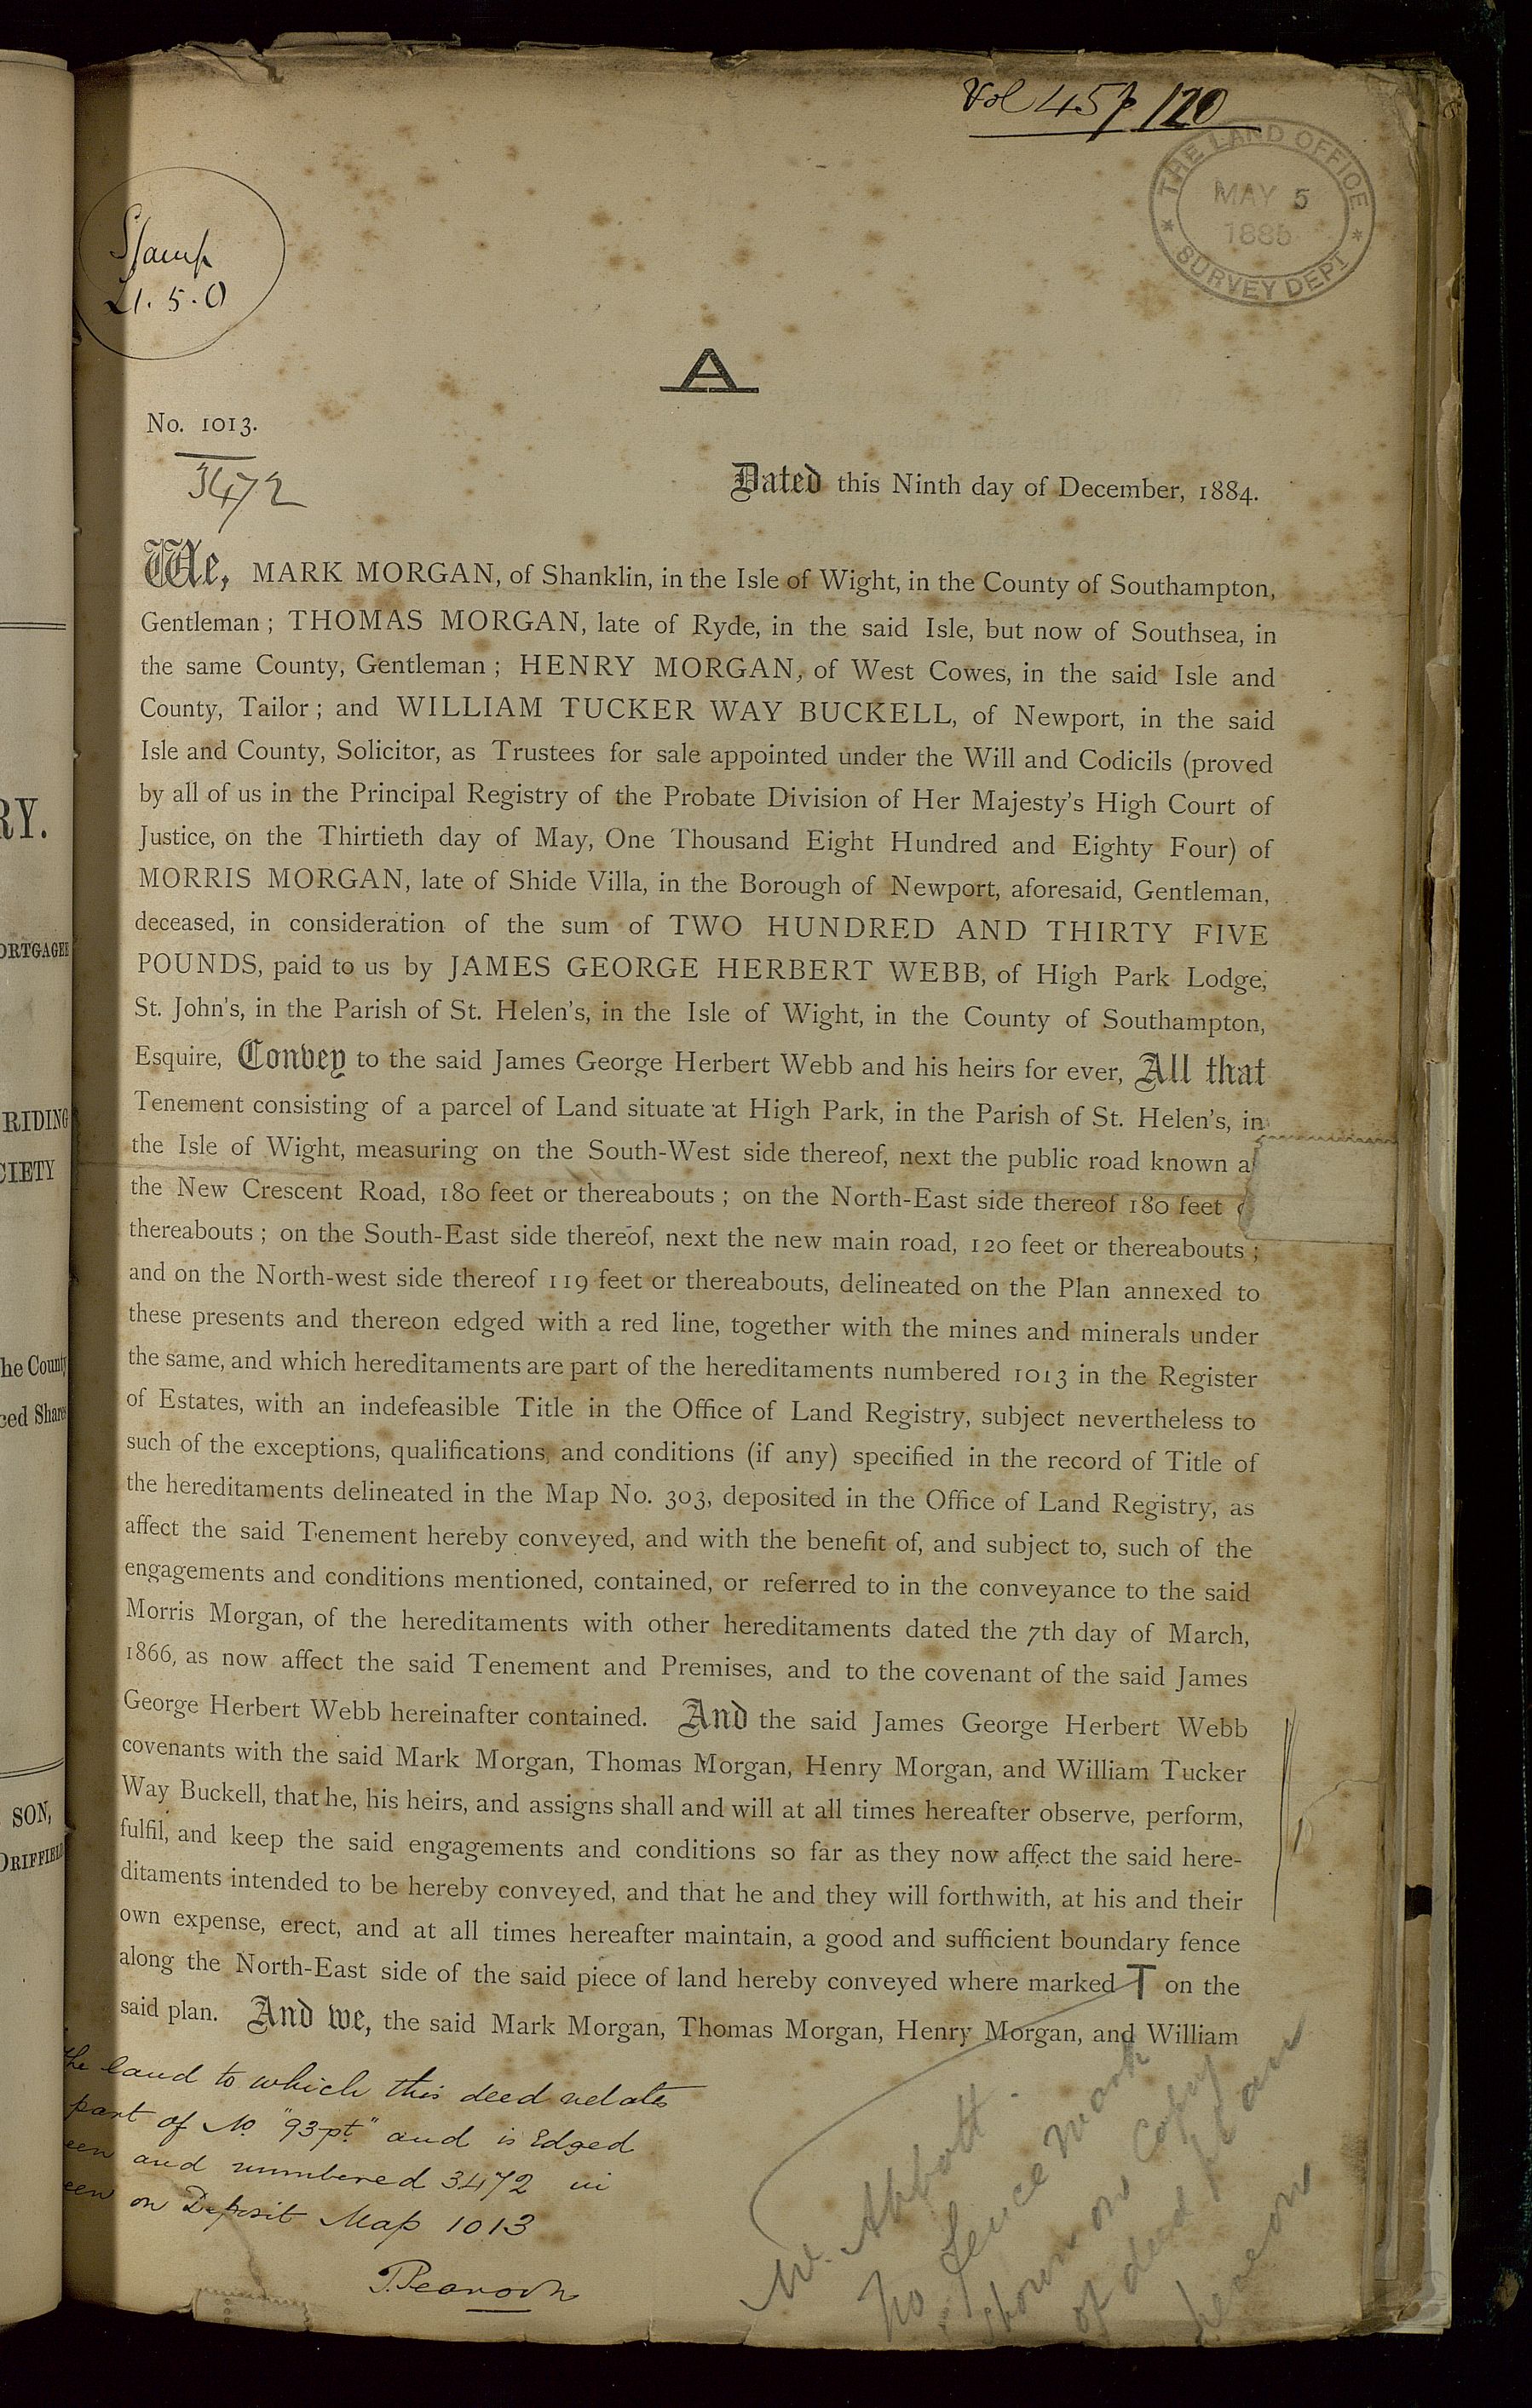 Vol 45 p 120
THE LAND OFFICE
MAY 5
1885
SURVEY DEPT
Stamp
£1.5.0
A
No. 1013.
3472
Dated this Ninth day of December, 1884.
We, MARK MORGAN, of Shanklin, in the Isle of Wight, in the County of Southampton,
Gentleman; THOMAS MORGAN, late of Ryde, in the said Isle, but now of Southsea, in
the same County, Gentleman; HENRY MORGAN, of West Cowes, in the said Isle and
County, Tailor; and WILLIAM TUCKER WAY BUCKELL, of Newport, in the said
Isle and County, Solicitor, as Trustees for sale appointed under the Will and Codicils (proved
by all of us in the Principal Registry of the Probate Division of Her Majesty's High Court of
Justice, on the Thirtieth day of May, One Thousand Eight Hundred and Eighty Four) of
MORRIS MORGAN, late of Shide Villa, in the Borough of Newport, aforesaid, Gentleman,
deceased, in consideration of the sum of TWO HUNDRED AND THIRTY FIVE
POUNDS, paid to us by JAMES GEORGE HERBERT WEBB, of High Park Lodge,
St. John's, in the Parish of St. Helen's, in the Isle of Wight, in the County of Southampton,
Esquire, Convey to the said James George Herbert Webb and his heirs for ever, All that
Tenement consisting of a parcel of Land situate at High Park, in the Parish of St. Helen's, in
the Isle of Wight, measuring on the South-West side thereof, next the public road known a
the New Crescent Road, 180 feet or thereabouts; on the North-East side thereof 180 feet
thereabouts; on the South-East side thereof, next the new main road, 120 feet or thereabouts;
and on the North-west side thereof 119 feet or thereabouts, delineated on the Plan annexed to
these presents and thereon edged with a red line, together with the mines and minerals under
the same, and which hereditaments are part of the hereditaments numbered 1013 in the Register
of Estates, with an indefeasible Title in the Office of Land Registry, subject nevertheless to
such of the exceptions, qualifications, and conditions (if any) specified in the record of Title of
the hereditaments delineated in the Map No. 303, deposited in the Office of Land Registry, as
affect the said Tenement hereby conveyed, and with the benefit of, and subject to, such of the
engagements and conditions mentioned, contained, or referred to in the conveyance to the said
Morris Morgan, of the hereditaments with other hereditaments dated the 7th day of March,
1866, as now affect the said Tenement and Premises, and to the covenant of the said James
George Herbert Webb hereinafter contained. And the said James George Herbert Webb
covenants with the said Mark Morgan, Thomas Morgan, Henry Morgan, and William Tucker
Way Buckell, that he, his heirs, and assigns shall and will at all times hereafter observe, perform,
fulfil, and keep the said engagements and conditions so far as they now affect the said here-
ditaments intended to be hereby conveyed, and that he and they will forthwith, at his and their
own expense, erect, and at all times hereafter maintain, a good and sufficient boundary fence
along the North-East side of the said piece of land hereby conveyed where marked T on the
said plan. And we, the said Mark Morgan, Thomas Morgan, Henry Morgan, and William
the land to which this deed relates
part of No. "93 pt." and is Edged
een and numbered 3472 in
een on Deposit Map 1013
Mr. Abbott.
No fence mark
shown on copy
of deed plan
hereon
RY.
ORTGAGEE
RIDING
CIETY
he County
ced Shares
SON,
DRIFFIELD